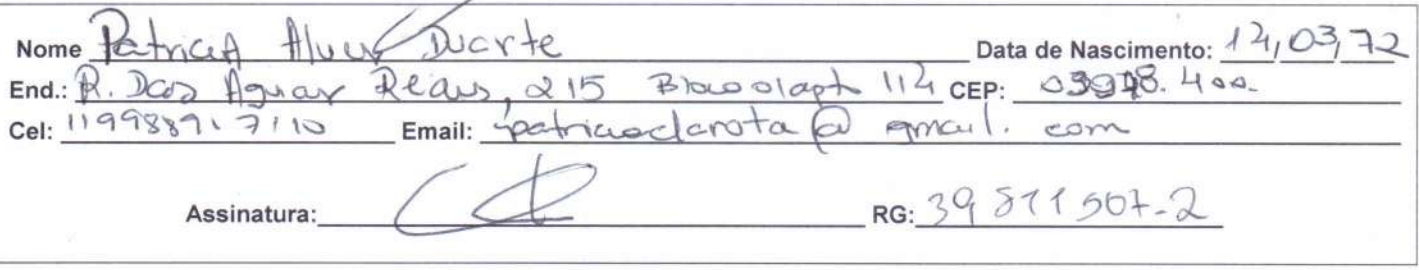 Nome Patricia Alves Duarte Data de Nascimento: 14/03/72
End.: R. Das Aguar Reais, 215 Bloco 01 apt 114 CEP: 03978.400.
Cel: 119 9889. 7110 Email: @ gmail.com
Assinatura: RG: 39 811 507-2